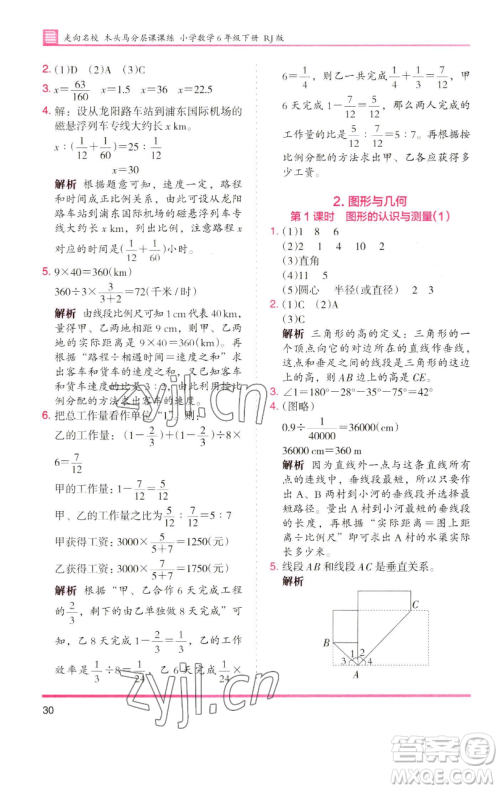 走向名校 木头马分层课课练 小学数学6年级下册 RJ版
2. (1)D (2)A
3. x=63/160 x=5
4. 解：设从龙阳路车站到浦东国际机场的
磁悬浮列车专线大约长 x km。
x：(1/12+1/60)=25：1/12
x=30
解析 根据题意可知，速度一定，路程
和时间成正比例，所以设从龙阳路
车站到浦东国际机场的磁悬浮列车
专线大约长 x km，列出比例，解比例
即可。
5. 9×40=360(km)
360÷3×3/(3+2)=72(千米/时)
解析 由线段比例尺可知1 cm代表40
km，量得甲、乙两地的图上距离为9 cm，
所以甲、乙两地的实际距离是360 km。
根据“路程÷相遇时间=速度和”求
出速度和，又已知客车与货车的速
度的比是3：2，所以客车的速度按
比例分配即可求出。
6. 把总工作量看作单位“1”，则：
乙的工作量：(1-2/3)+(1-2/3)÷8×
6=7/12
甲的工作量：1-7/12=5/12
甲、乙的工作量之比为5/12：7/12=5：7
甲获得工资：3000×5/(5+7)=1250(元)
乙获得工资：3000×7/(5+7)=1750(元)
解析 根据“甲、乙合作6天完成工程
的2/3，剩下的由乙单独做8天完成”可
知，乙8天完成了1-2/3=1/3，乙的工作
效率是1/3÷8=1/24，乙6天完成1/24×
6=1/4，所以乙一共完成1/3+1/4=7/12，甲
6天完成1-7/12=5/12。那么两人完成的
工作量的比是5/12：7/12=5：7，根据按比
例分配的方法求出甲、乙各应获得多
少工资。
2. 图形与几何
第1课时 图形的认识与测量(1)
1. (1)1 8 6
(2)2 1 4
(3)直角
(4)11 5
(5)圆心 半径(或直径) 2 3
2. (1)C (2)A
(3)C
解析 三角形的高的定义：三角形的一
个顶点向它的对边所在的直线作垂线，
顶点与垂足之间的线段是三角形的一
条高，则AB是△ABC的高。
3. ∠1=180°-28°-35°-75°=42°
4. (图略)
0.9÷1/40000=36000(cm)
36000 cm=360 m
解析 因为从直线外一点到这条直线
所画的垂直线段最短，所以A、B两村
到小河的垂直线段就是路程最短的路
线。量出A、B两村到小河的垂直线段
的长度，然后根据“实际距离=图上距
离÷比例尺”求出A村到小河的实际
距离即可。
5. 线段AB和线段AC是垂直关系。
解析
C
B
1 2
3 4
A
30
zyjl.cn
答案圈